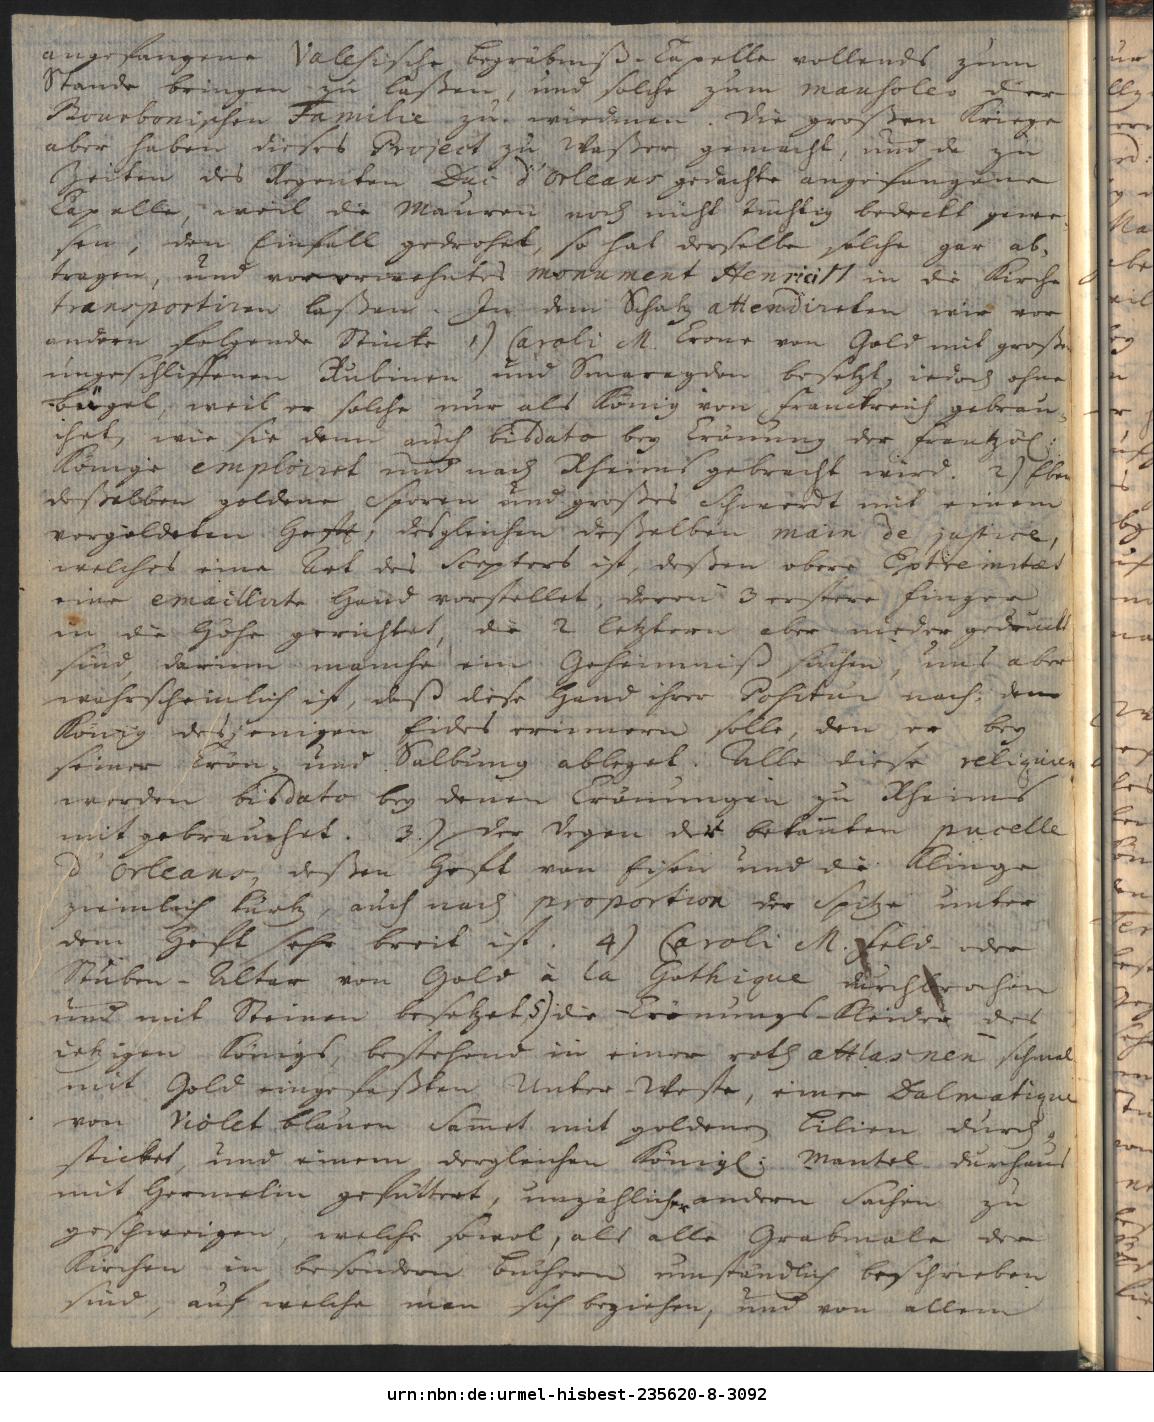 angefangene Valesische Begräbniß-Capelle vollends zum
Stande bringen zu laßen, und solche zum mausoleo der
Bourbonischen Familie zu wiedmen. Die großen Kriege
aber haben dieses Project zu Waßer gemacht, und da zu
Zeiten des Regenten Duc d'Orleans gedachte angefangene
Capelle, weil die Mauren noch nicht tüchtig bedeckt gewe-
sen, den Einfall gedrohet, so hat derselbe solche gar ab-
tragen, und vorerwehntes monument Henrici II in die Kirche
transportiren laßen. In dem Schatz attendireten wir vor
andern folgende Stücke 1) Caroli M. Crone von Gold mit großen
ungeschliffenen Rubinen und Smaragden besetzt, iedoch ohne
Bügel, weil er solche nur als König von Franckreich gebrau-
chet, wie sie denn auch bisdato bey Crönung der frantzös:
Könige emploiret und nach Rheims gebracht wird. 2) Eben
deßelben goldene Sporen und großes Schwerdt mit einem
vergoldeten Hefft, desgleichen deßelben main de justice,
welches eine Art des Scepters ist, deßen obere Extremitæt
eine emaillirte Hand vorstellet, deren 3 erstere Finger
in die Höhe gerichtet, die 2 letztern aber nieder gedruckt
sind, darinn manche ein Geheimniß suchen, uns aber
wahrscheinlich ist, daß diese Hand ihrer Positur nach, den
König desjenigen Eides erinnern solle, den er bey
seiner Crön- und Salbung ableget. Alle diese reliquien
werden bisdato bey denen Crönungen zu Rheims
mit gebrauchet. 3.) Der Degen der bekannten pucelle
d'Orleans, deßen Hefft von Eisen und die Klinge
ziemlich kurtz, auch nach proportion der Spitze unter
dem Hefft sehr breit ist. 4) Caroli M. Feld- oder
Stuben-Altar von Gold à la Gothique durchbrochen
und mit Steinen besetzet 5) die Crönungs-Kleider des
ietzigen Königs, bestehend in einer roth attlasnen schmal
mit Gold eingefaßten Unter-Weste, einer Dalmatique
von Violet blauen Sammet mit goldenen Lilien durch-
sticket, und einem dergleichen Königl: Mantel durchaus
mit Hermelin gefüttert, unzählicher andern Sachen zu
geschweigen, welche sowol, als alle Grabmale der
Kirchen in besondern Buchern umständlich beschrieben
sind, auf welche man sich beziehen, und von allem